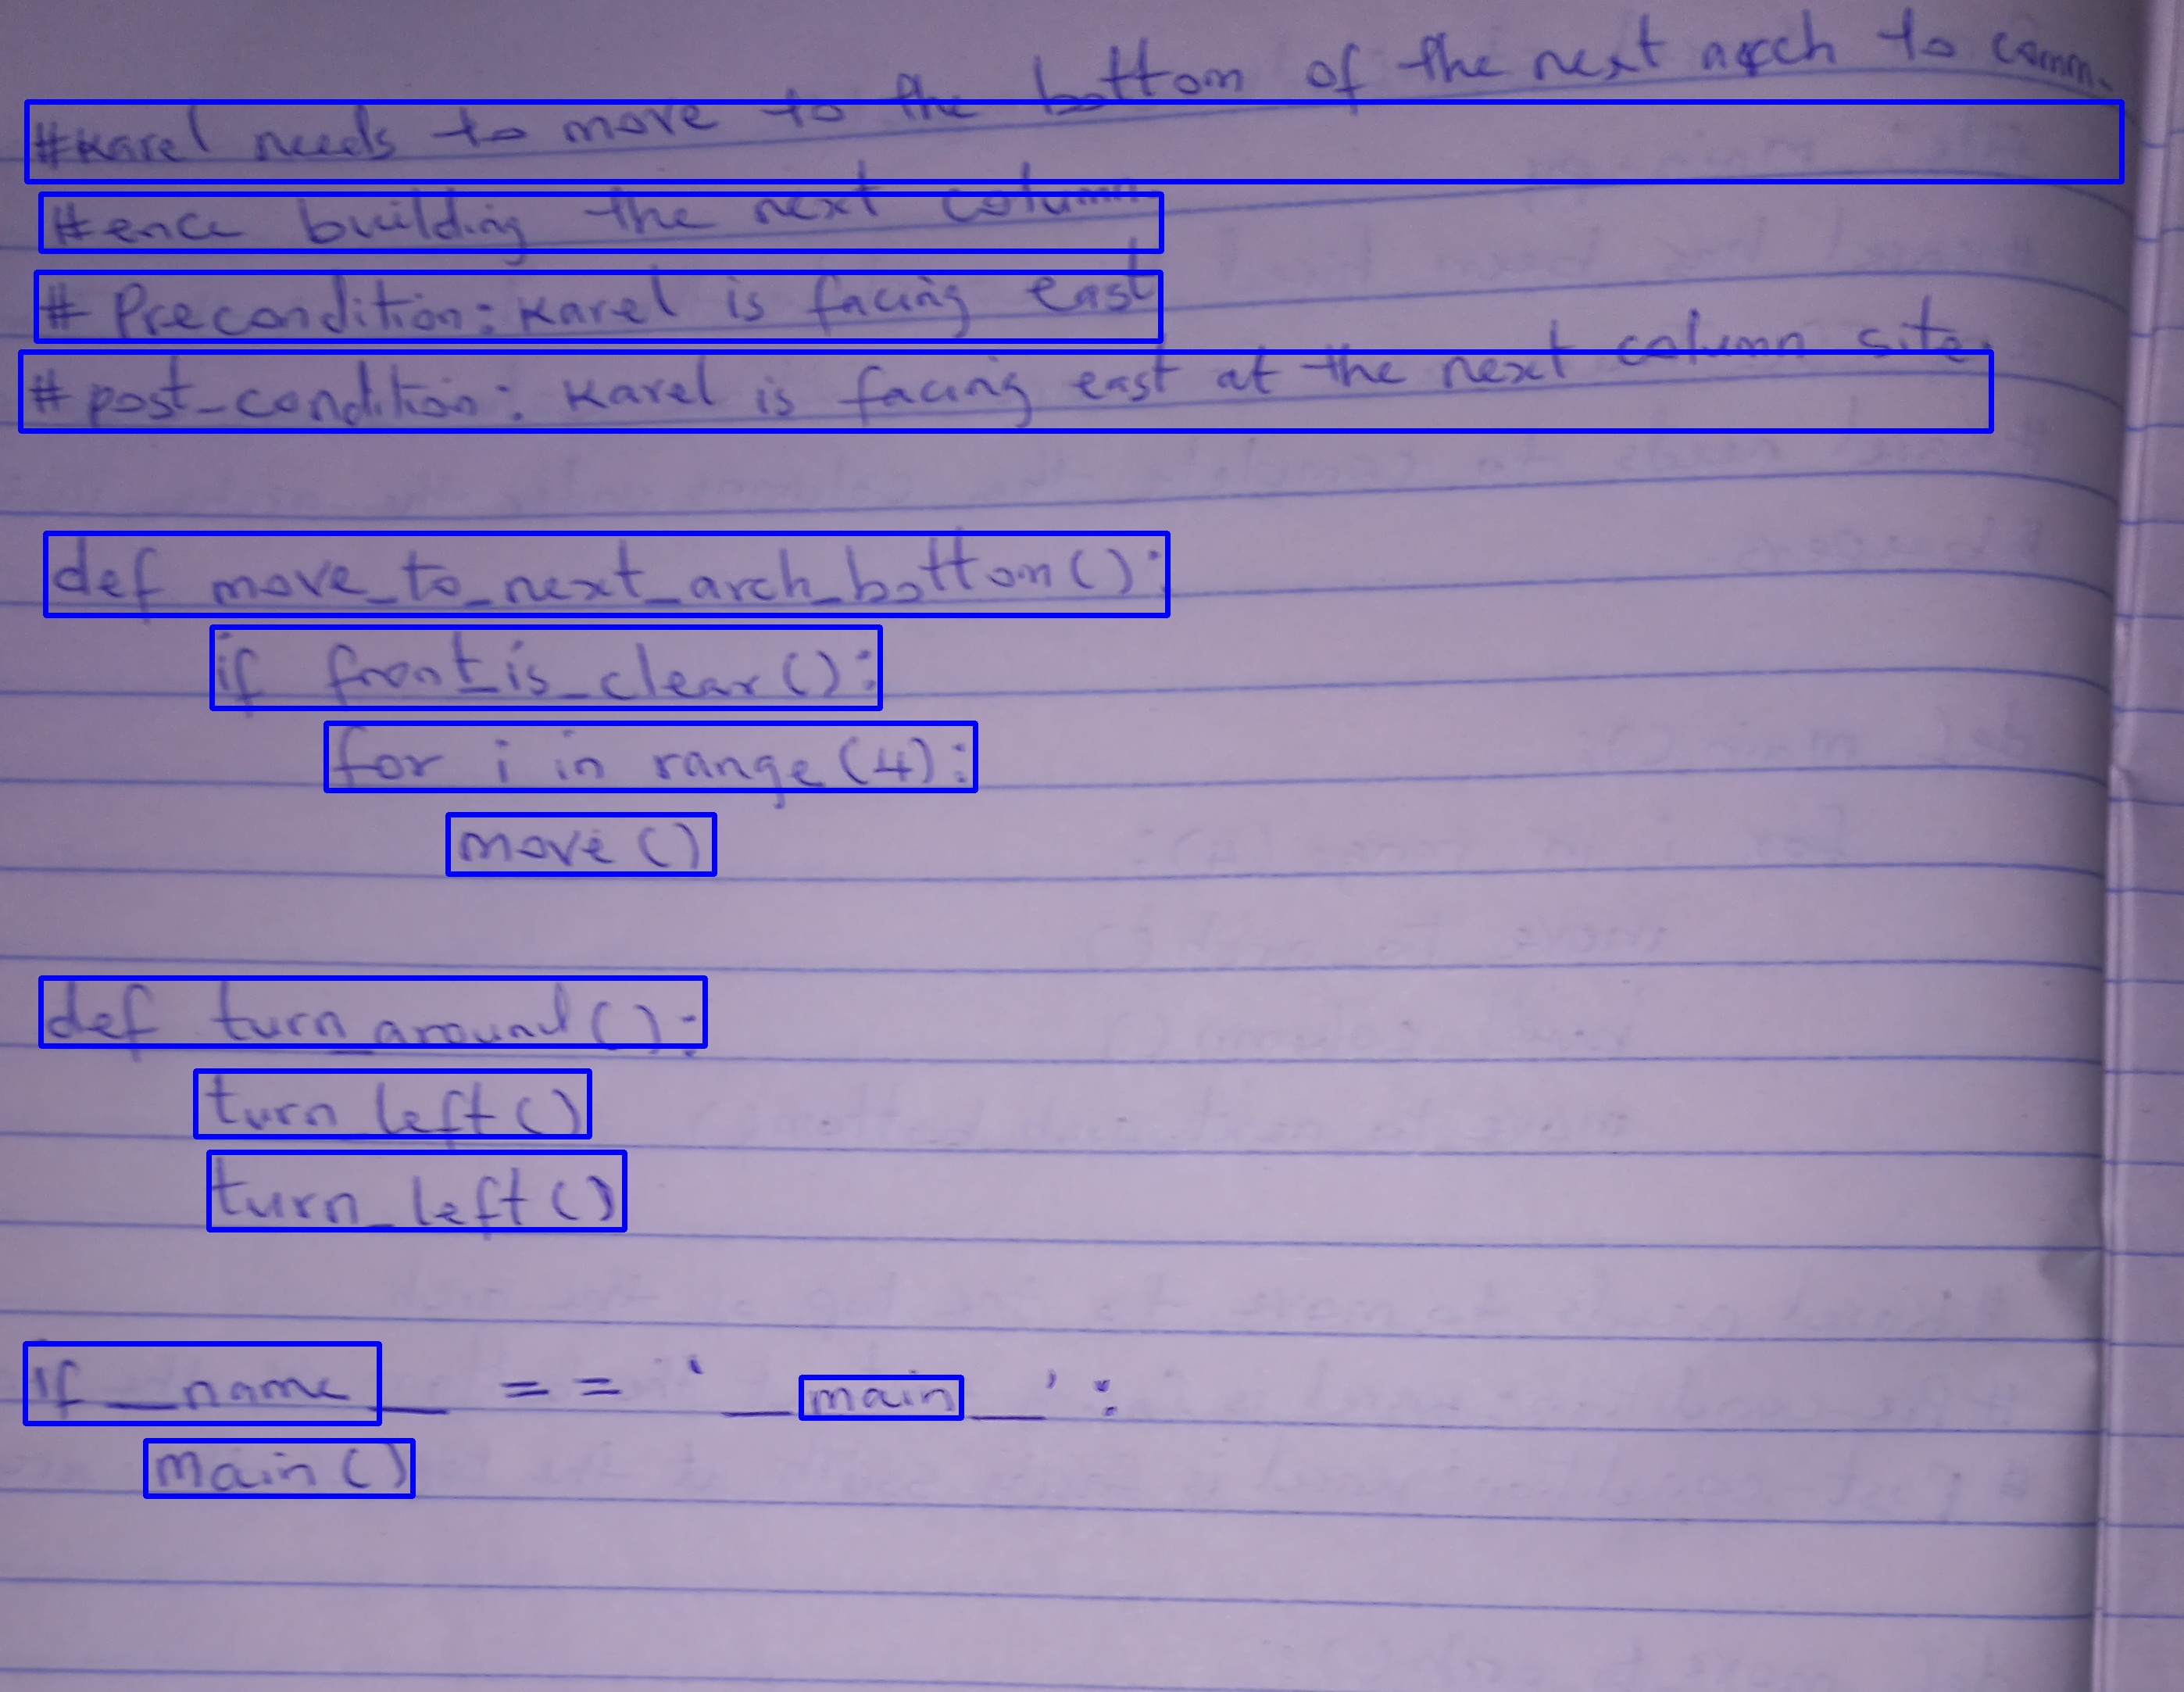 #Karel needs to move to the bottom of the next arch to comm-
#ence building the next column.
# Precondition: Karel is facing east
# post_condition: Karel is facing east at the next column site.
def move_to_next_arch_bottom():
if front_is_clear():
for i in range(4):
move()
def turn_around():
turn_left()
turn_left()
if __name__ == '__main__':
main()